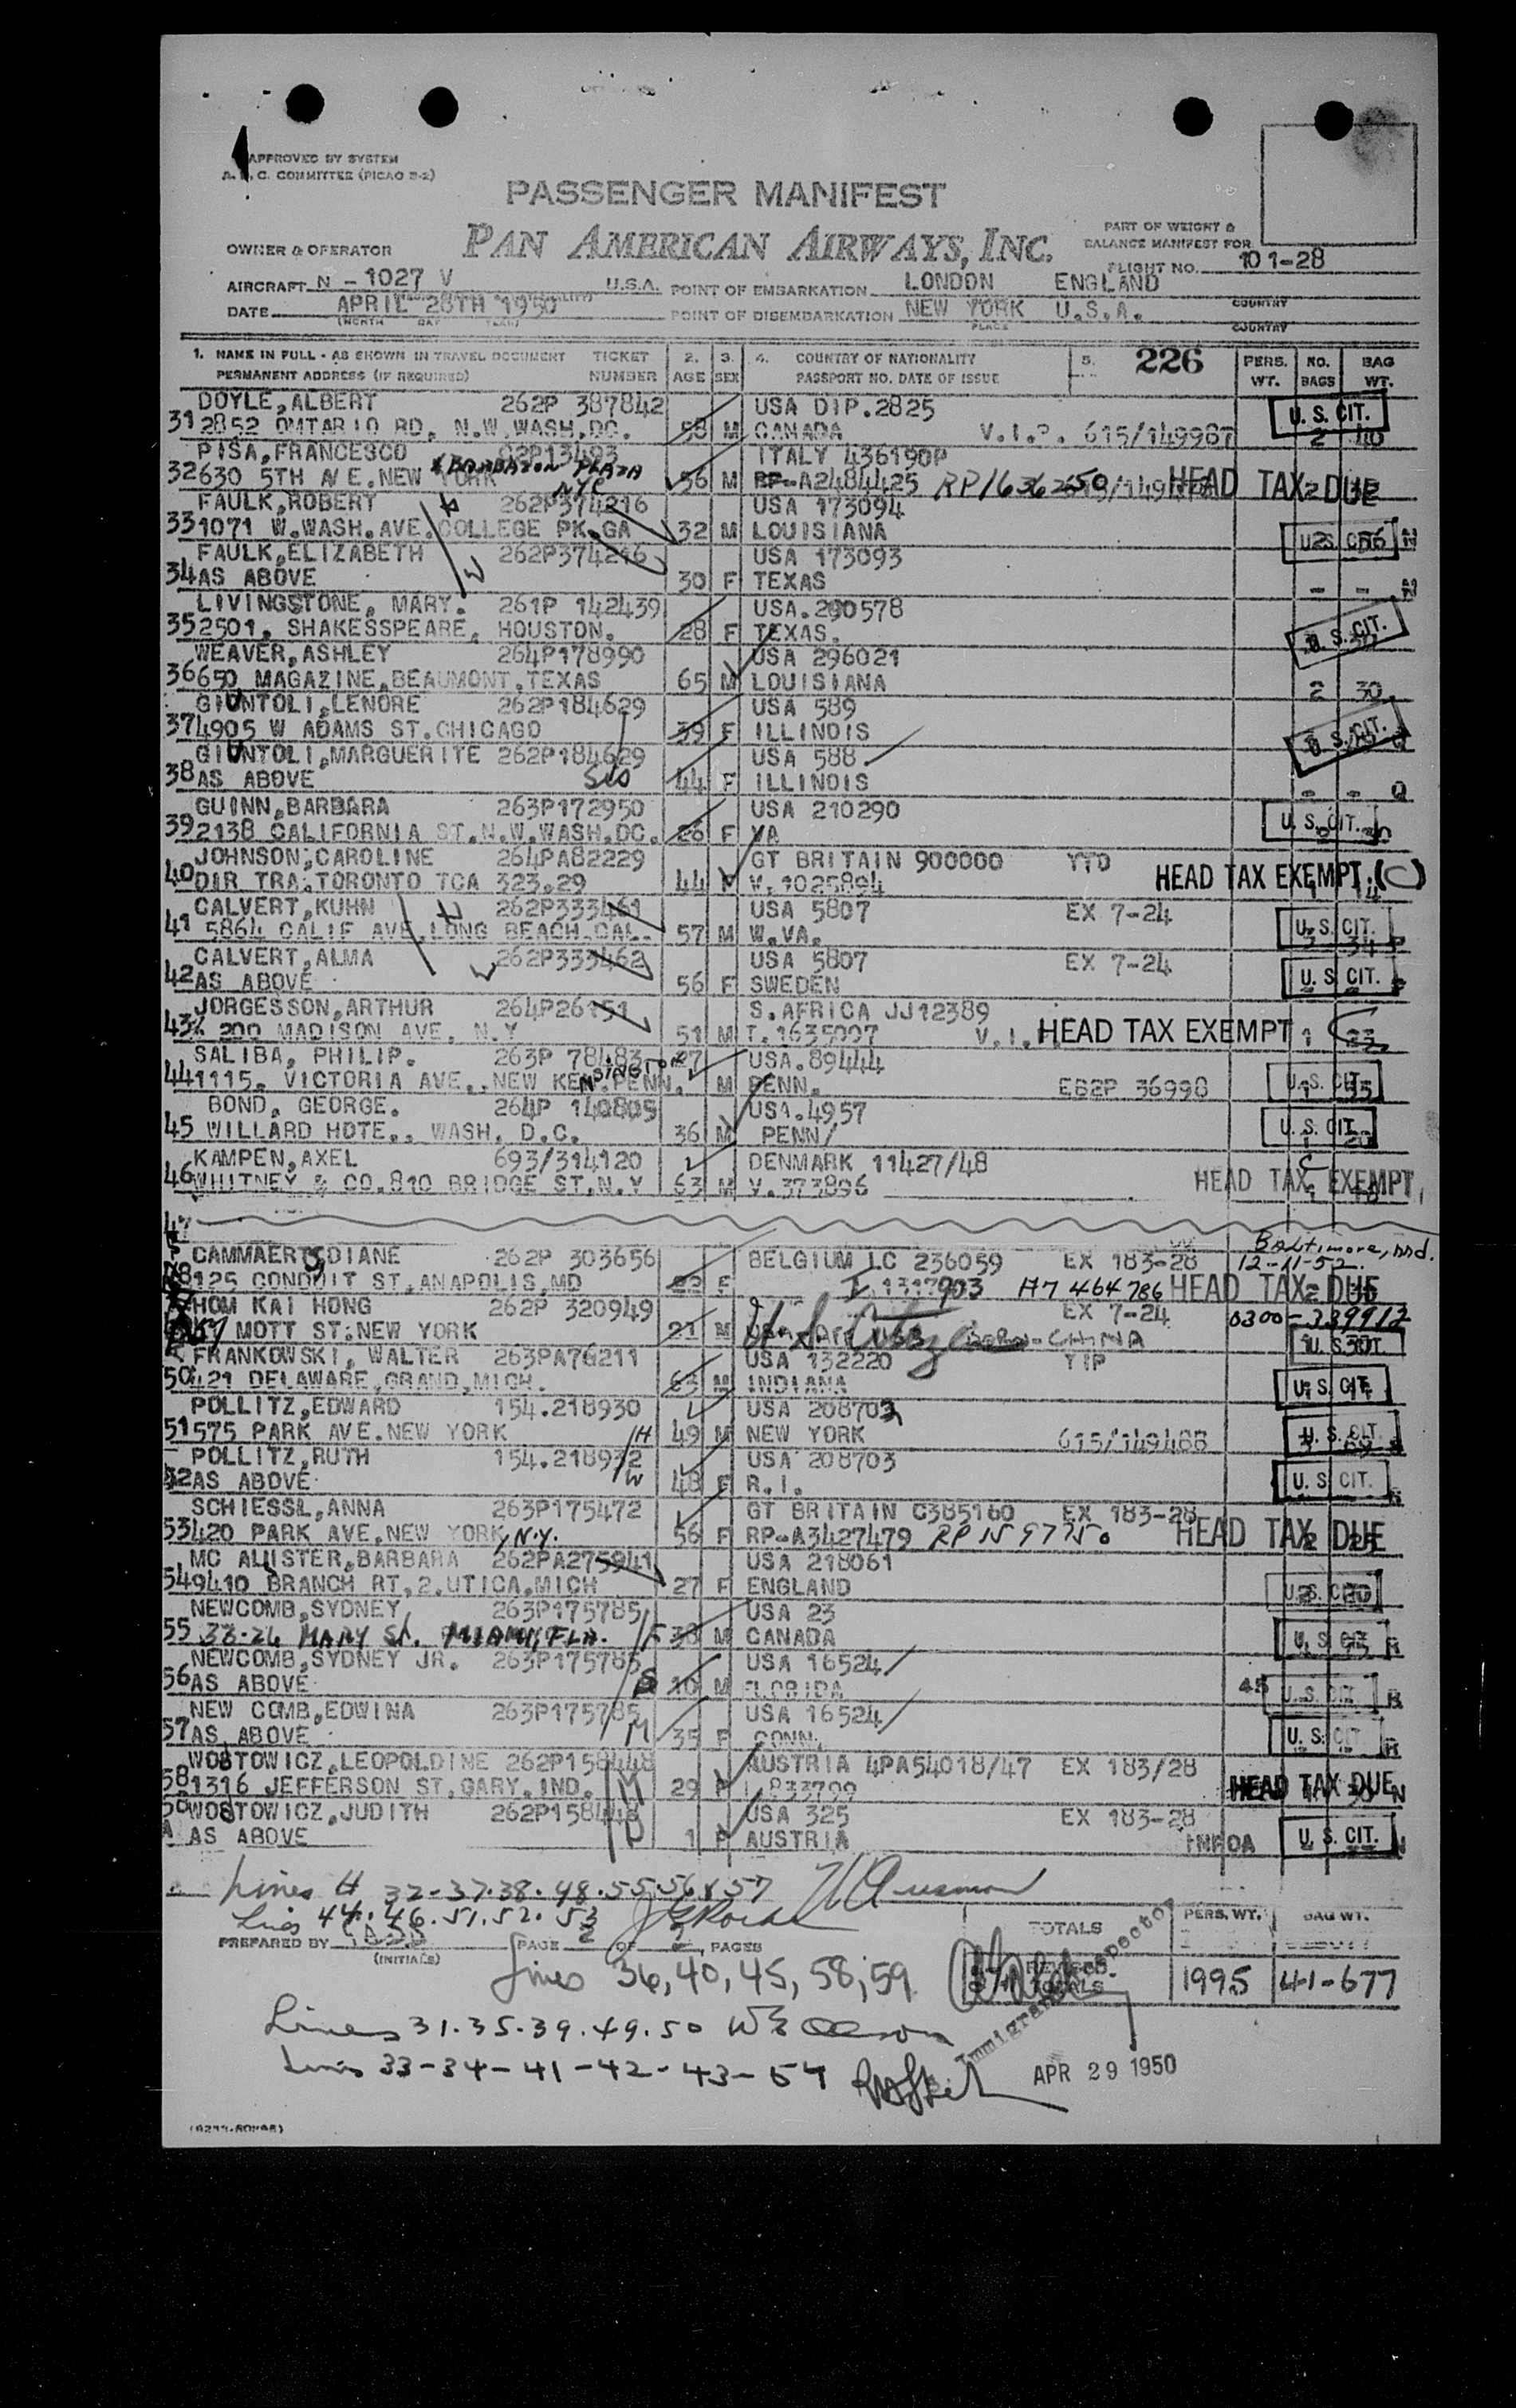 APPROVED BY SYSTEM
A. T. C. COMMITTEE (PICAO 2-2)
PASSENGER MANIFEST
PAN AMERICAN AIRWAYS, INC.
OWNER & OPERATOR
PART OF WEIGHT &
BALANCE MANIFEST FOR
FLIGHT NO. 101-28
AIRCRAFT N - 1027 V U.S.A. POINT OF EMBARKATION LONDON ENGLAND
COUNTRY
DATE APRIL 28TH 1950 POINT OF DISEMBARKATION NEW YORK U.S.A.
(MONTH DAY YEAR) PLACE COUNTRY
1. NAME IN FULL - AS SHOWN IN TRAVEL DOCUMENT TICKET 2. 3. 4. COUNTRY OF NATIONALITY 5. 226 PERS. NO. BAG
PERMANENT ADDRESS (IF REQUIRED) NUMBER AGE SEX PASSPORT NO. DATE OF ISSUE WT. BAGS WT.
DOYLE,ALBERT 262P 387842 USA DIP.2825 U.S. CIT.
31 2852 OMTARIO RD. N.W.WASH.DC. 58 M CANADA V.I.P. 615/149987 2 40
PISA,FRANCESCO ITALY 436190P
BARBAZON PLAZA
32 630 5TH AVE.NEW YORK NYC 56 M RP-A2484425 RP1636250 HEAD TAX DUE
FAULK,ROBERT H 262P374216 USA 173094
33 1071 W.WASH.AVE.COLLEGE PK.GA 32 M LOUISIANA
FAULK,ELIZABETH W 262P374216 USA 173093
34 AS ABOVE 30 F TEXAS - -
LIVINGSTONE, MARY. 261P 142439 USA.290578
35 2501. SHAKESSPEARE. HOUSTON. 28 F TEXAS. U.S.CIT.
WEAVER,ASHLEY 264P178990 USA 296021
36 650 MAGAZINE,BEAUMONT,TEXAS 65 M LOUISIANA 2 30
GIUNTOLI,LENORE 262P184629 USA 589
37 4905 W ADAMS ST.CHICAGO 39 F ILLINOIS U.S.CIT.
GIUNTOLI,MARGUERITE 262P184629 USA 588
38 AS ABOVE Sis 44 F ILLINOIS - -
GUINN,BARBARA 263P172950 USA 210290
39 2138 CALIFORNIA ST.N.W.WASH.DC. 26 F VA U.S.CIT.
JOHNSON,CAROLINE 264PA82229 GT BRITAIN 900000 YTD
40 DIR TRA.TORONTO TCA 323.29 44 F V.1025894 HEAD TAX EXEMPT (C)
CALVERT,KUHN H 262P333461 USA 5807 EX 7-24
41 5864 CALIF AVE.LONG BEACH.CAL. 57 M W.VA. U.S. CIT.
CALVERT,ALMA W 262P333462 USA 5807 EX 7-24
42 AS ABOVE 56 F SWEDEN U.S. CIT.
JORGESSON,ARTHUR 264P26151 S.AFRICA JJ12389
43 % 200 MADISON AVE. N.Y 51 M T.1635097 HEAD TAX EXEMPT 1
SALIBA, PHILIP. 263P 78483 27 USA.89444
44 1115. VICTORIA AVE..NEW KENSINGTON PENN. M PENN. EB2P 36998 U.S. CIT.
BOND, GEORGE. 264P 140805 USA.4957
45 WILLARD HOTE.. WASH. D.C. 36 M PENN/ U.S. CIT.
KAMPEN,AXEL 693/314120 DENMARK 11427/48
46 WHITNEY & CO.810 BRIDGE ST.N.Y 63 M V.373896 HEAD TAX EXEMPT
47
CAMMAERTS,DIANE 262P 303656 BELGIUM LC 236059 EX 183-28 Baltimore, Md. 12-11-52
48 125 CONDUIT ST.ANAPOLIS.MD 22 F 1317903 A7 464786 HEAD TAX DUE
HOM KAI HONG 262P 320949 U S Citizen EX 7-24 0300-339912
MOTT ST:NEW YORK 21 M BORN-CHINA
FRANKOWSKI, WALTER 263PA76211 USA 132220 YIP
50 421 DELAWARE,GRAND,MICH. 63 M INDIANA U.S. CIT.
POLLITZ,EDWARD 154.218930 USA 208703
51 575 PARK AVE.NEW YORK H 49 M NEW YORK 615/149488 U.S.CIT
POLLITZ,RUTH 154.218932 USA 208703
52 AS ABOVE W 48 F R.I. U.S. CIT.
SCHIESSL,ANNA 263P175472 GT BRITAIN C385160 EX 183-28
53 420 PARK AVE.NEW YORK, N.Y. 56 F RP-A3427479 RP 1597750 HEAD TAX DUE
MC ALISTER,BARBARA 262PA275941 USA 218061
54 9410 BRANCH RT.2.UTICA,MICH 27 F ENGLAND
NEWCOMB,SYDNEY 263P175785 USA 23
55 32-26 MARY St. MIAMI, FLA. F 38 M CANADA
NEWCOMB,SYDNEY JR. 263P175785 USA 16524
56 AS ABOVE S 10 M FLORIDA 45 U.S. CIT
NEW COMB,EDWINA 263P175785 USA 16524
57 AS ABOVE M 35 F CONN. U.S. CIT
WOSTOWICZ,LEOPOLDINE 262P158448 AUSTRIA 4PA54018/47 EX 183/28
58 1316 JEFFERSON ST.GARY.IND. M 29 F HEAD TAX DUE
WOSTOWICZ,JUDITH 262P158448 USA 325 EX 183-28
AS ABOVE D 1 F AUSTRIA U.S. CIT.
Lines 32-37-38-48-55-56 & 57
Lines 44.46.51.52.53
PREPARED BY PAGE 2 OF 2 PAGES TOTALS PERS. WT. BAG WT.
(INITIALS)
Lines 36,40,45,58,59 TOTALS 1995 41-677
Immigrant Inspector
Lines 31.35.39.49.50
Lines 33-34-41-42-43-54
APR 29 1950